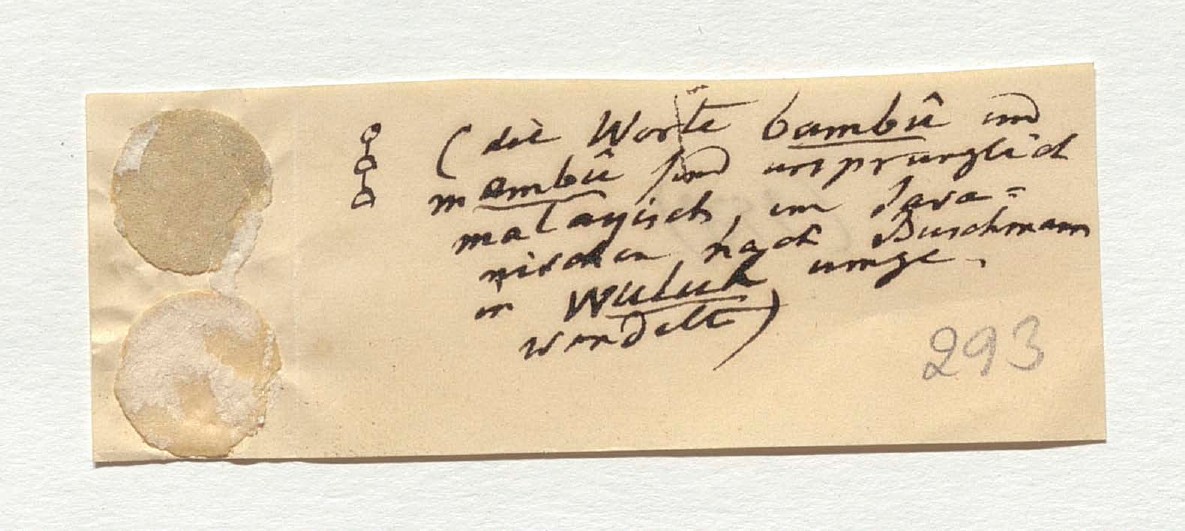 (die Worte bambû und
mambû sind ursprunglich
malayisch, im Java=
nischen nach Buschmann
in Wuluh umge-
wandelt)
293